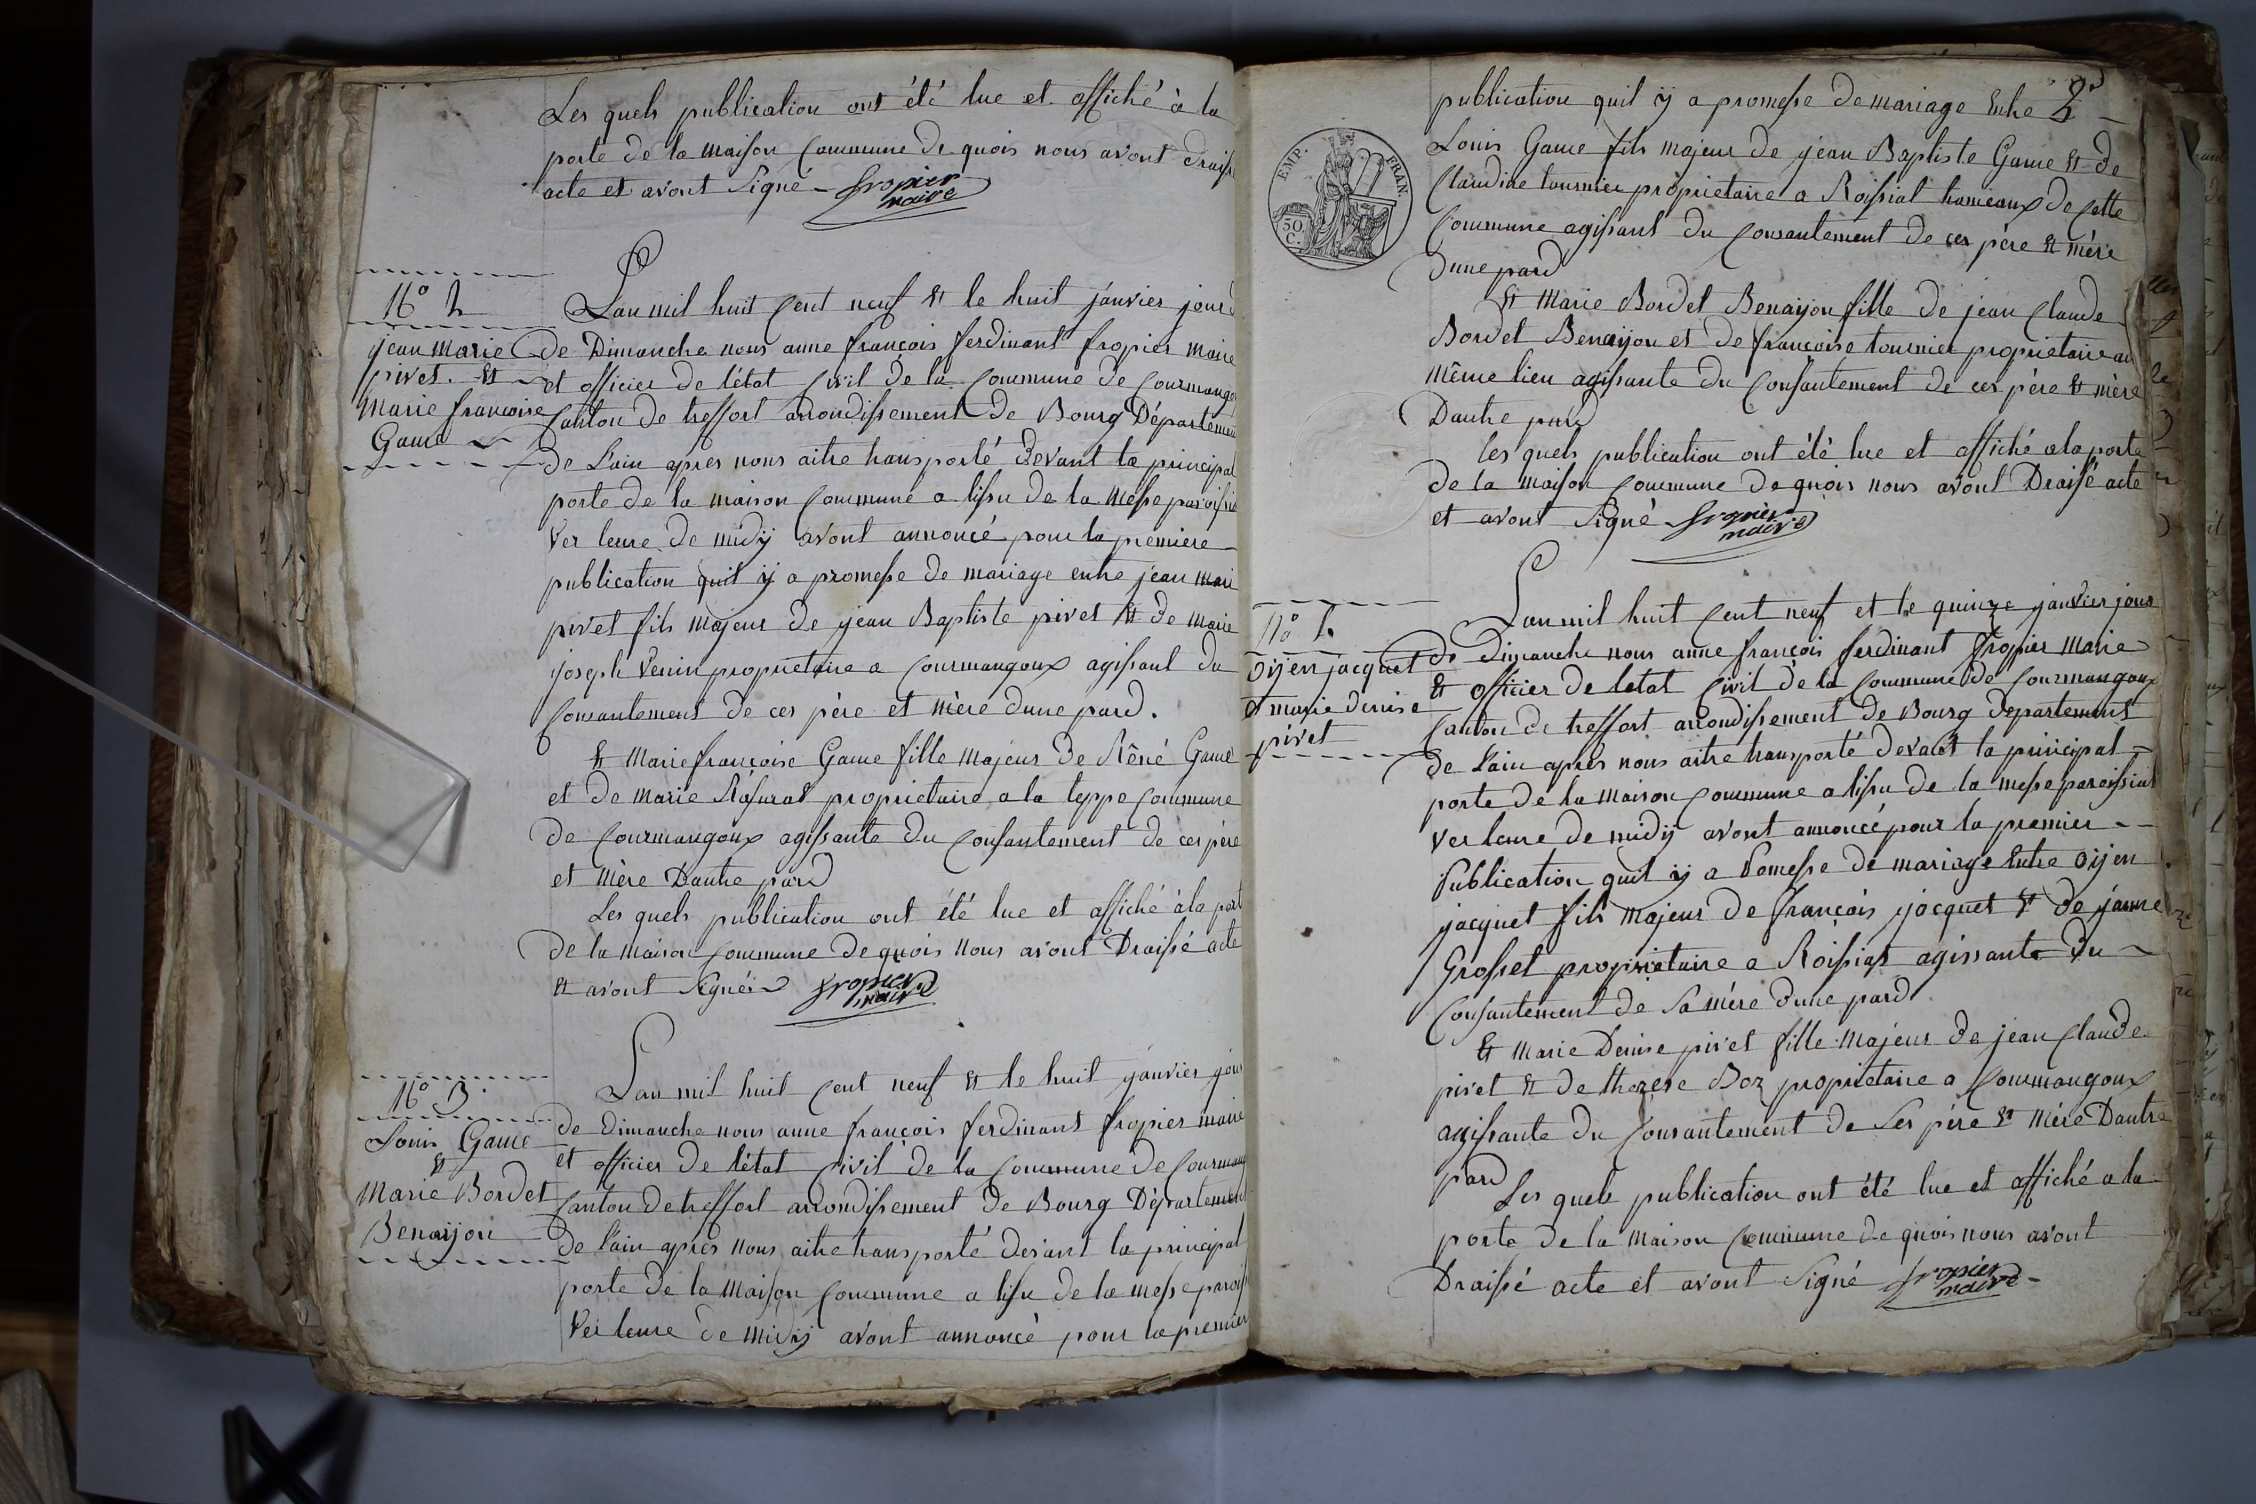 Les quels publication ont été lue et affiché à la
porte de la maison Commune de quois nous avont draissé
acte et avont signé fropier
maire
N° 2
jean marie
pivet. et
marie francoise
Game
L'an mil huit cent neuf et le huit janvier jour
de Dimanche nous anne françois ferdinant fropier maire
et officier de l'état Civil de la Commune de Courmangoux
Canton de treffort arrondissement de Bourg Département
de l'ain apres nous aitre transporté devant la principal
porte de la maison Commune a lissu de la messe paroissial
ver leure de midÿ avont annoncé pour la premiere
publication quil ÿ a promesse de mariage entre jean mari
pivet fils majeur de jean Baptiste pivet et de marie
joseph Venin proprietaire a Courmangoux agissant du
Consantement de ces père et mère dune pard.
et Marie françoise Game fille majeur de Réné Game
et de Marie Rasurat proprietaire a la teppe Commune
de Courmangoux agissante du Consantement de ces père
et mère Dautre pard
Les quels publication ont été lue et affiché à la port
de la maison Commune de quois nous avont Draissé acte
et avont signé fropier
maire
N° 3
Louis Game
et
Marie Bordet
Benaÿon
L'an mil huit cent neuf et le huit janvier jour
de dimanche nous anne françois ferdinant fropier maire
et officier de l'état Civil de la Commune de Courmang
Canton de treffort arrondissement de Bourg Département
de l'ain apres nous aitre transporté devant la principal
porte de la maison Commune a lissu de la messe parois
ver leure de midÿ avont annoncé pour la premier
2e
publication quil ÿ a promesse de mariage Entre
Louis Game fils majeur de jean Baptiste Game et de
Claudine tournier proprietaire a Roissiat hameaux de Cette
Commune agissant du Consantement de ces père et mère
dune pard
et Marie Bordet Benaÿon fille de jean Claude
Bordet Benaÿon et de françoise tournier proprietaire au
même lieu agissante du Consantement de ces père et mère
Dautre pard
les quels publication ont été lue et affiché a la porte
de la maison Commune de quois nous avont Draissé acte
et avont signé fropier
maire
EMP. FRAN.
50
C.
N° 4
Oÿen jacquet
et marie denise
pivet
L'an mil huit cent neuf et le quinze janvier jour
de dimanche nous anne françois ferdinant fropier Marie
et officier de letat Civil de la Commune de Courmangoux
Canton de treffort arrondissement de Bourg departement
de l'ain aprés nous aitre transporté devant la principal
porte de la maison Commune a lissu de la messe paroissial
ver leure de midÿ avont annoncé pour la premier
Publication quil ÿ a Pomesse de mariage Entre oÿen
jacquet fils majeur de françois jacquet et de janne
Grosset proprietaire a Roissiat agissante du
Consantement de sa mère dune pard
et Marie Denise pivet fille majeur de jean Claude
pivet et de therese Boz proprietaire a Courmangoux
agissante du Consantement de ses père et mère Dautre
pard
Les quels publication ont été lue et affiché a la
porte de la maison Commune de quois nous avont
Draissé acte et avont signé fropier
maire